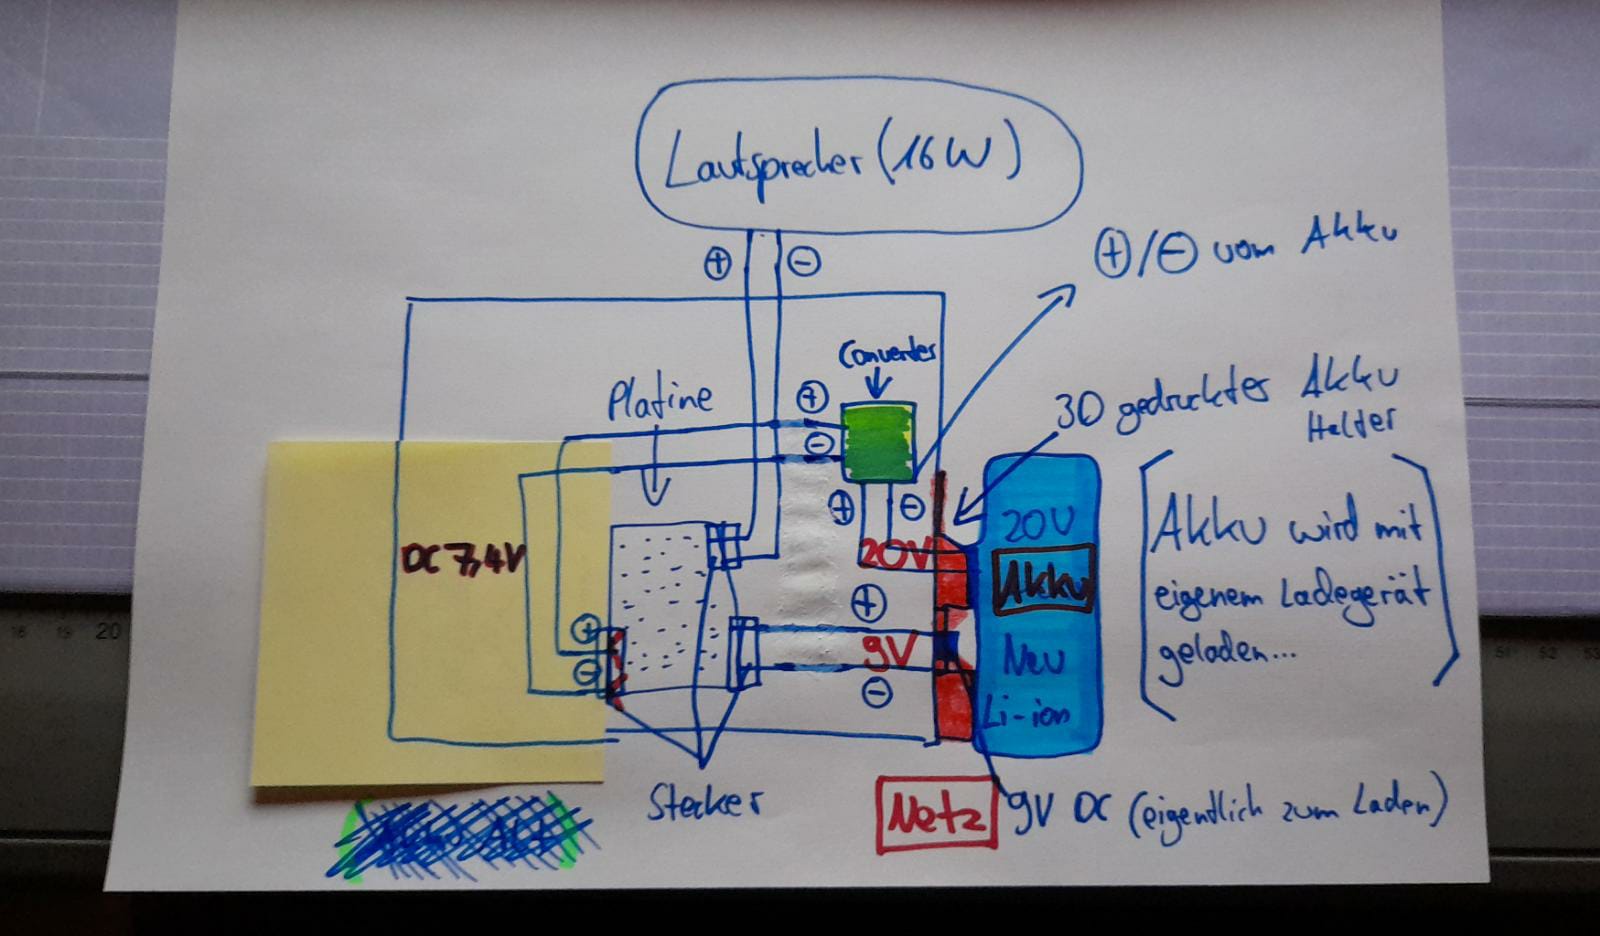 Lautsprecher (16W)
+ -
+/- vom Akku
Converter
Platine
+
-
3D gedruckter Akku
Halter
+ -
20V
DC 7,4V
20V
Akku
Neu
Li-ion
Akku wird mit
eigenem Ladegerät
geladen...
+
-
+
9V
-
Stecker
Netz
9V DC (eigentlich zum Laden)
20